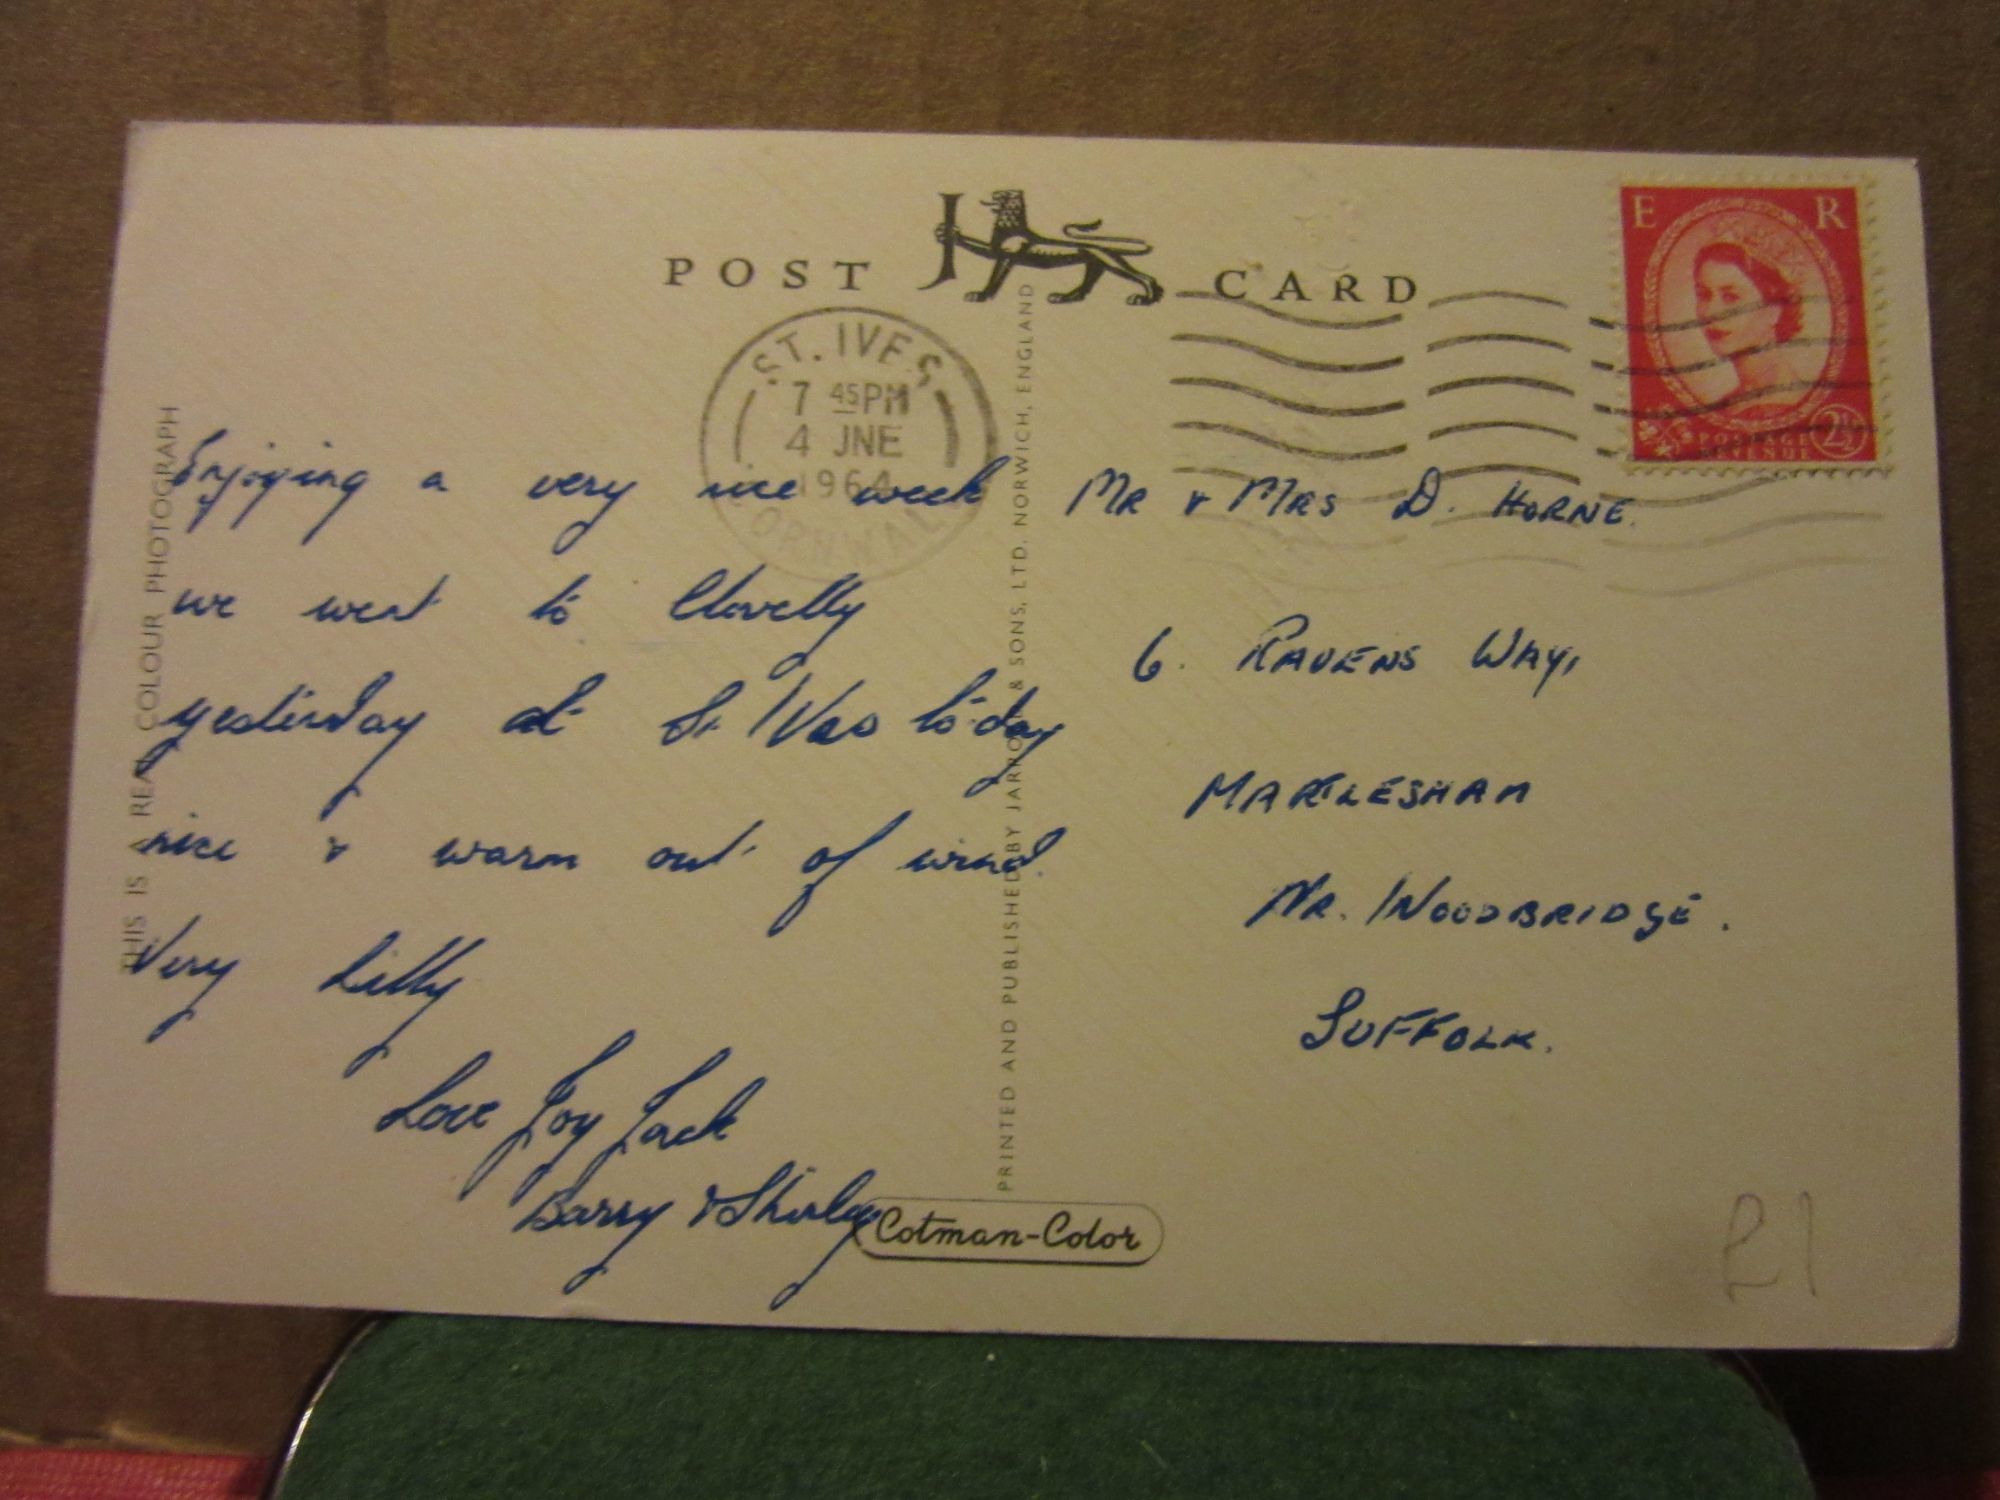 POST CARD
ST. IVES
7 45PM
4 JNE
1964
CORNWALL
E R
POSTAGE 2½
REVENUE
THIS IS A REAL COLOUR PHOTOGRAPH
Enjoying a very nice week
we went to Clovelly
yesterday at St Ives to-day
nice & warm out of wind.
Very hilly
Love Joy Jack
Barry & Shirley
PRINTED AND PUBLISHED BY JARROLD & SONS, LTD. NORWICH, ENGLAND
MR & MRS D. HORNE.
6. RAVENS WAY,
MARTLESHAM
NR. WOODBRIDGE.
SUFFOLK.
Cotman-Color
£1